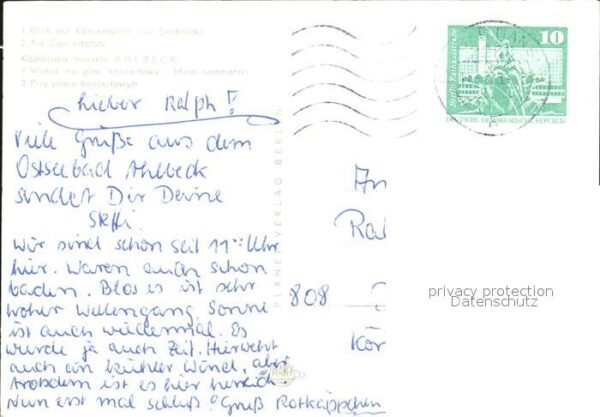 1 Blick auf Konzertplatz und Seebrücke
2 Am Konzertplatz
Kąpielisko morskie AHLBECK
1 Widok na plac koncertowy i Most nadmorski
2 Przy placu koncertowym
10
Berlin, Rathausstraße
DEUTSCHE DEMOKRATISCHE REPUBLIK
PLANET-VERLAG BERLIN
Lieber Ralph!
Viele Grüße aus dem
Ostseebad Ahlbeck
sendet Dir Deine
Steffi.
Wir sind schon seit 11⁰⁰ Uhr
hier. Waren auch schon
baden. Blos es ist sehr
hoher Wellengang. Sonne
ist auch wiedermal. Es
wurde ja auch Zeit. Hier weht
auch ein kühler Wind, aber
trotzdem ist es hier herrlich.
Nun erst mal schluß! Gruß Rotkäppchen
An
Ral
808
Kör
privacy protection
Datenschutz